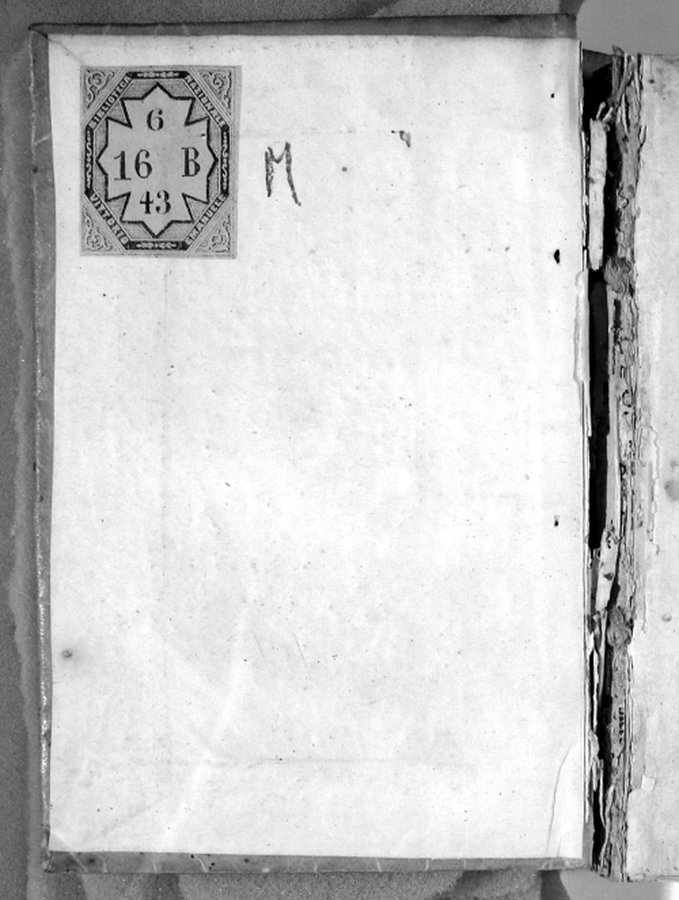 BIBLIOTECA NAZIONALE
6
16 B
43
VITTORIO EMANUELE
M